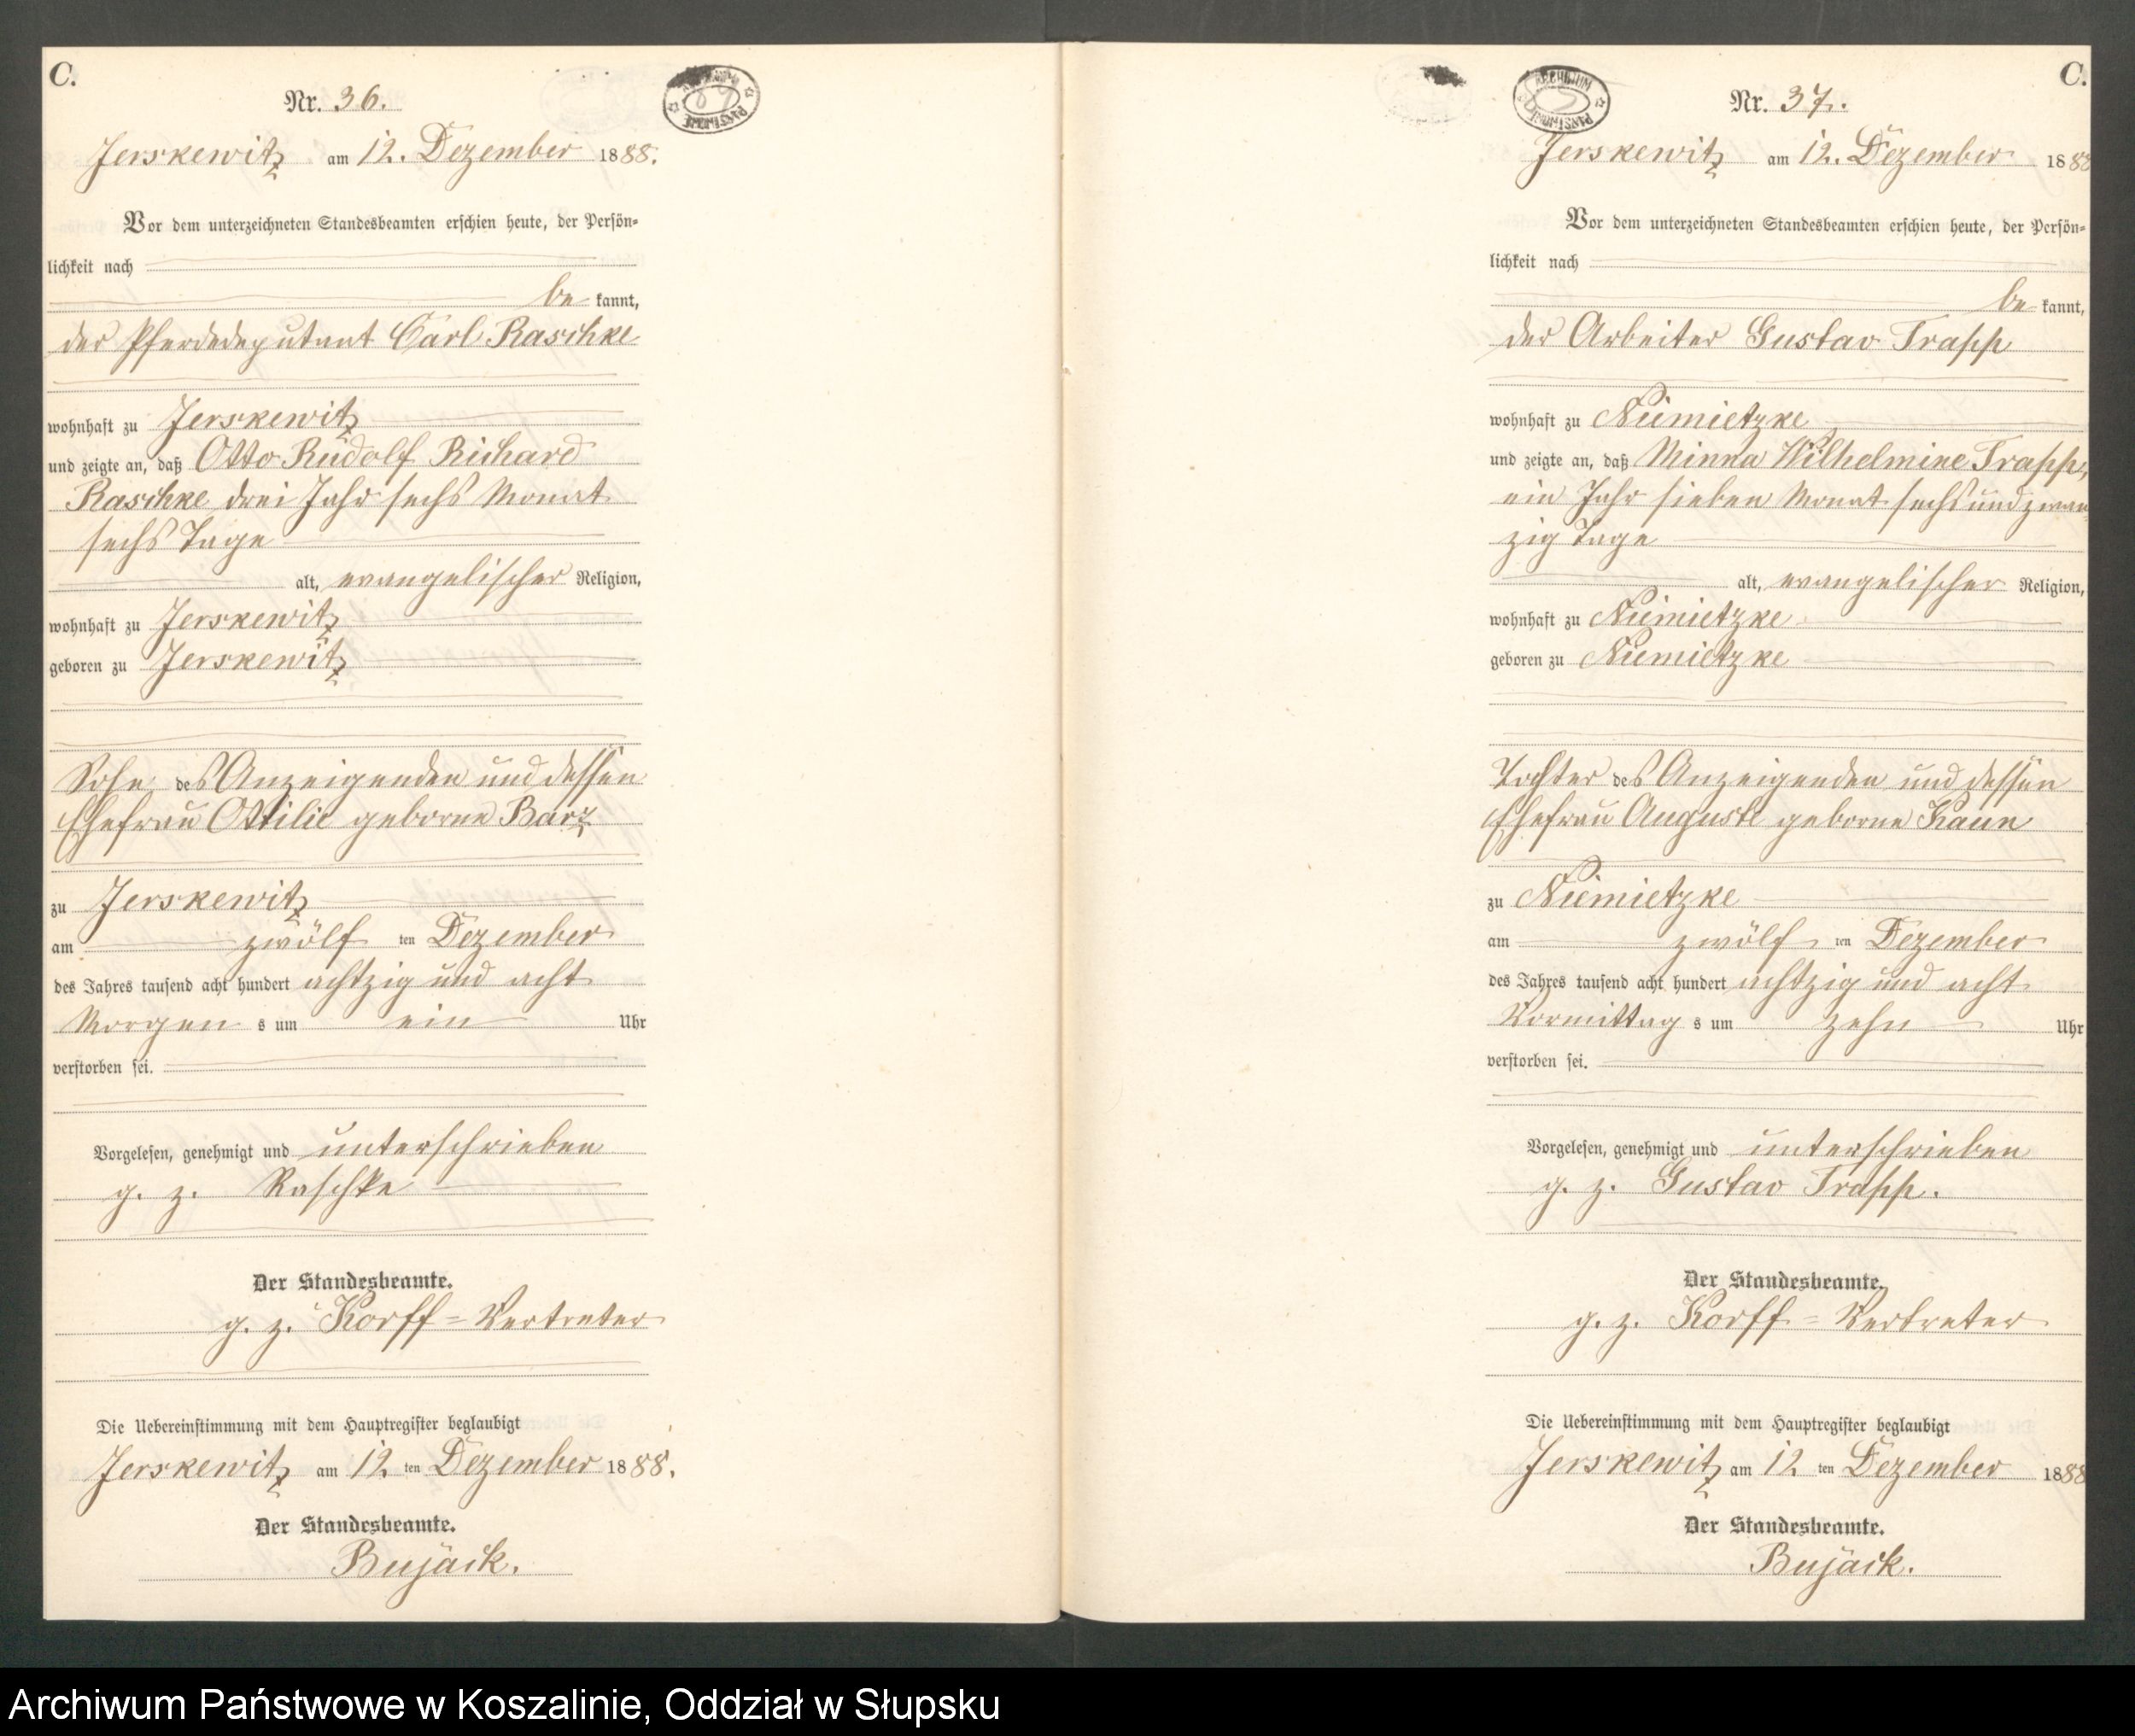 C.
Nr. 36.
Jerskewitz am 12. Dezember 1888.
Vor dem unterzeichneten Standesbeamten erschien heute, der Persön-
lichkeit nach
be kannt,
der Pferdedeputant Carl Raschke
wohnhaft zu Jerskewitz
und zeigte an, daß Otto Rudolf Richard
Raschke drei Jahr sechs Monat
sechs Tage
alt, evangelischer Religion,
wohnhaft zu Jerskewitz
geboren zu Jerskewitz
Sohn des Anzeigenden und dessen
Ehefrau Ottilie geborne Barz
zu Jerskewitz
am zwölf ten Dezember
des Jahres tausend acht hundert achtzig und acht
Morgen s um ein Uhr
verstorben sei.
Vorgelesen, genehmigt und unterschrieben
g. z. Raschke
Der Standesbeamte.
g. z. Korff = Vertreter
Die Uebereinstimmung mit dem Hauptregister beglaubigt
Jerskewitz am 12 ten Dezember 1888.
Der Standesbeamte.
Bujack.
ARCHIWUM PAŃSTWOWE
C.
Nr. 37.
Jerskewitz am 12. Dezember 1888
Vor dem unterzeichneten Standesbeamten erschien heute, der Persön-
lichkeit nach
be kannt,
der Arbeiter Gustav Trapp
wohnhaft zu Niemietzke
und zeigte an, daß Minna Wilhelmine Trapp,
ein Jahr sieben Monat sechs und zwan
zig Tage
alt, evangelischer Religion,
wohnhaft zu Niemietzke
geboren zu Niemietzke
Tochter des Anzeigenden und dessen
Ehefrau Auguste geborne Kaun
zu Niemietzke
am zwölf ten Dezember
des Jahres tausend acht hundert achtzig und acht
Vormittag s um zehn Uhr
verstorben sei.
Vorgelesen, genehmigt und unterschrieben
g. z. Gustav Trapp.
Der Standesbeamte.
g. z. Korff = Vertreter
Die Uebereinstimmung mit dem Hauptregister beglaubigt
Jerskewitz am 12 ten Dezember 1888
Der Standesbeamte.
Bujack.
ARCHIWUM PAŃSTWOWE
Archiwum Państwowe w Koszalinie, Oddział w Słupsku